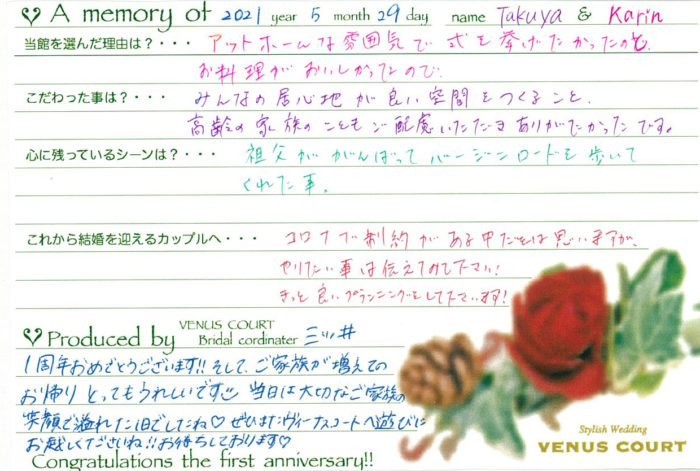 A memory of 2021 year 5 month 29 day name Takuya & Karin
当館を選んだ理由は？・・・ アットホームな雰囲気で 式を挙げたかったので。
お料理がおいしかったので
こだわった事は？・・・ みんなの居心地が良い空間をつくること。
高齢の家族のこともご配慮いただきありがたかったです。
心に残っているシーンは？・・・ 祖父ががんばってバージンロードを歩いて
くれた事。
これから結婚を迎えるカップルへ・・・ コロナで制約がある中だとは思いますが、
やりたい事は伝えてみて下さい!
きっと良いプランニングをして下さいます!
Produced by VENUS COURT
Bridal cordinater 三ツ井
1周年おめでとうございます!! そして、ご家族が増えての
お帰り とってもうれしいです 当日は大切なご家族の
笑顔で溢れた1日でしたね♡ ぜひまたヴィーナスコートへ遊びに
お越しくださいね!! お待ちしております♡
Congratulations the first anniversary!!
Stylish Wedding
VENUS COURT